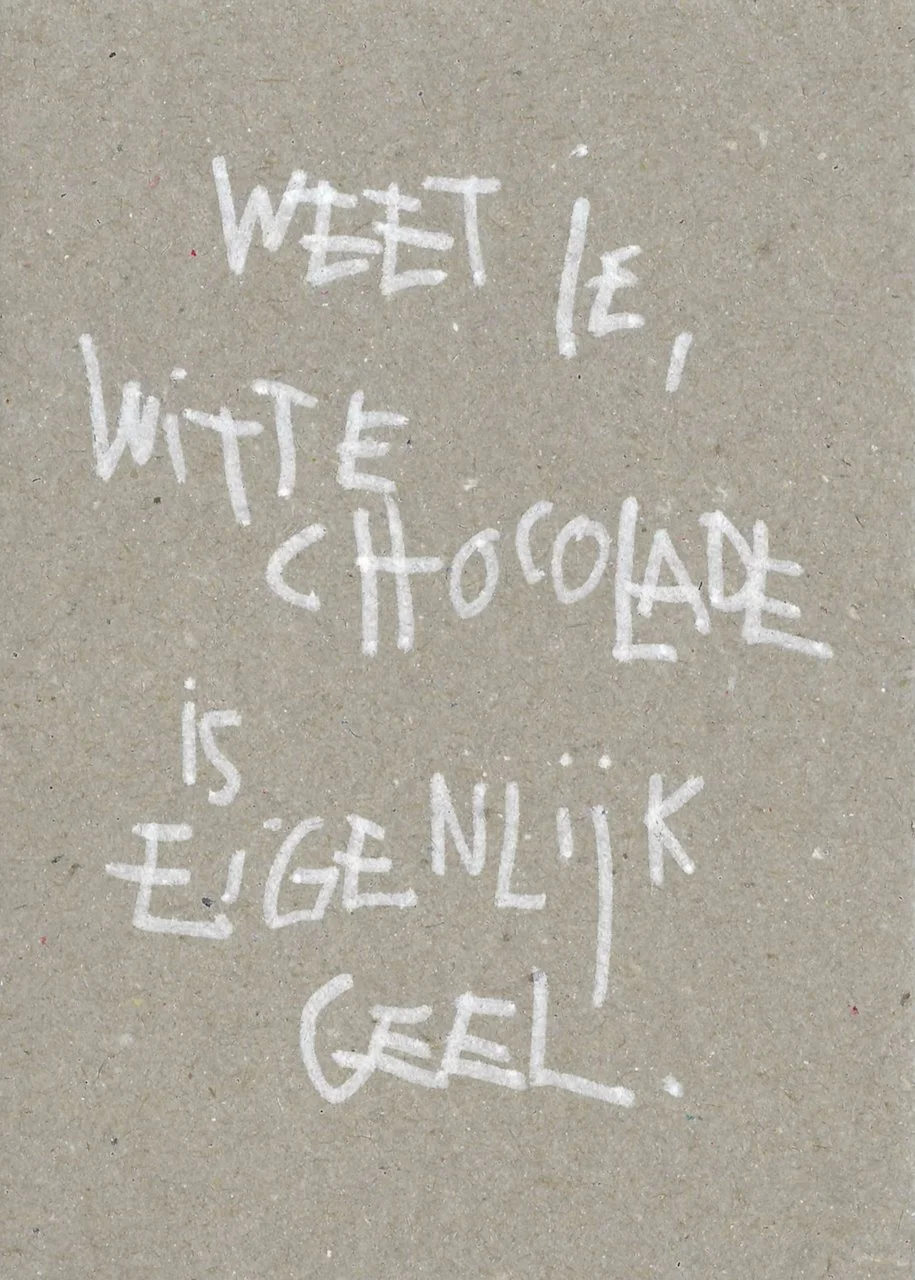 WEET JE,
WITTE
CHOCOLADE
is
EIGENLIJK
GEEL.